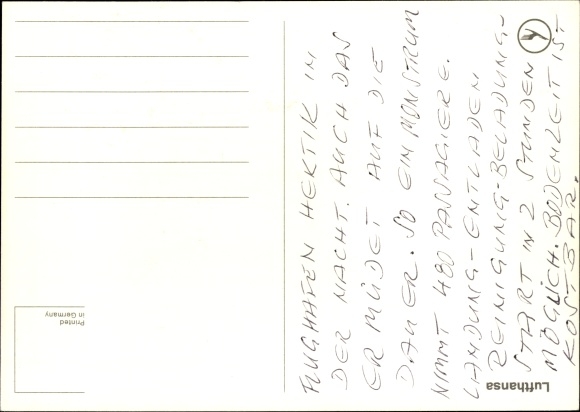 FLUGHAFEN HEKTIK IN
DER NACHT. AUCH DAS
ERMÜDET AUF DIE
DAUER. SO EIN MONSTRUM
NIMMT 480 PASSAGIERE.
LANDUNG-ENTLADEN
REINIGUNG-BELADUNG-
START IN 2 STUNDEN
MÖGLICH. BODENZEIT IST
KOSTBAR.
Lufthansa
Printed
in Germany